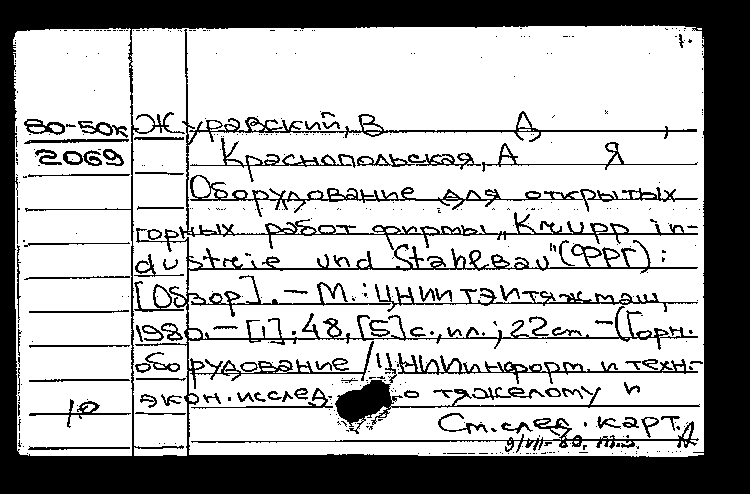 1.
80-50к Журавский, В А ,
2069 Краснопольская, А Я
Оборудование для открытых
горных работ фирмы „Krupp in-
dustrie und Stahlbau" (ФРГ) :
[Обзор]. — М. : ЦНИИТЭИтяжмаш,
1980. — [1]; 48, [5] с., ил.; 22 см. — (Горн.
оборудование / ЦНИИинформ. и техн.-
экон. исслед. о тяжелому и
1р
См. след. карт.
9/VII-80.